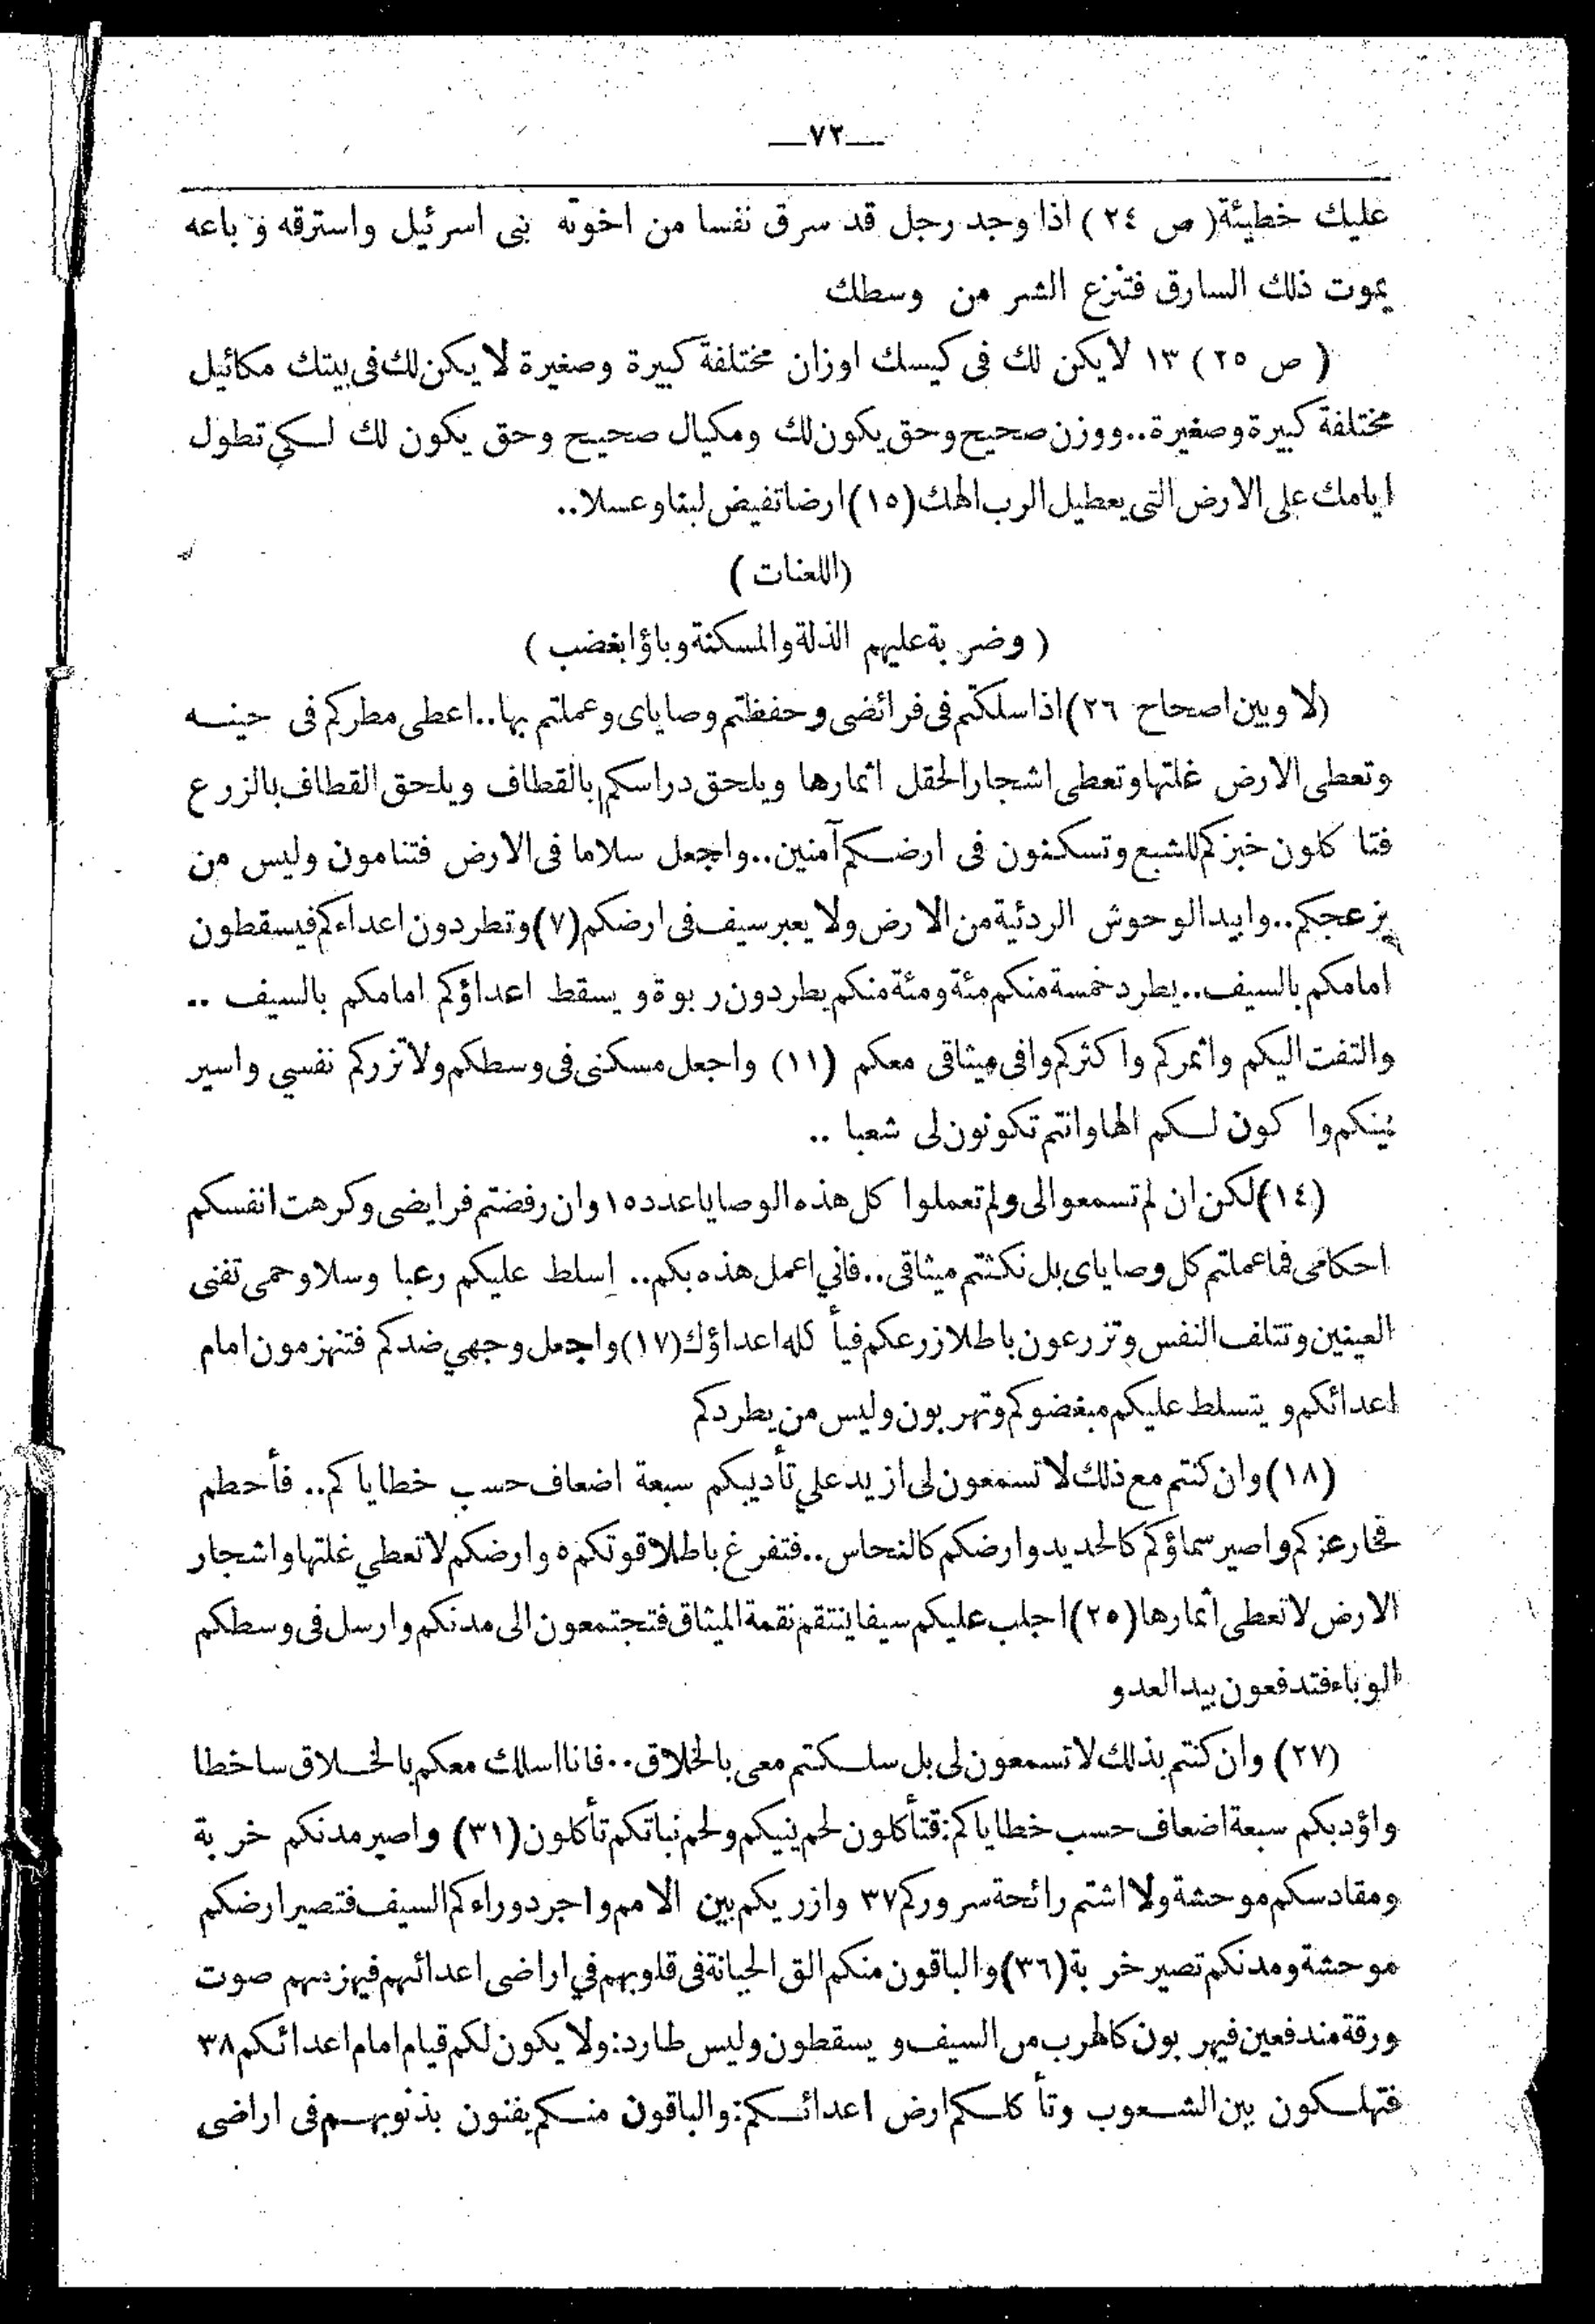 —٧٣—
عليك خطيئة ( ص ٢٤ ) اذا وجد رجل قد سرق نفسا من اخوته بنى اسرئيل واسترقه و باعه
يموت ذلك السارق فتنزع الشر من وسطك
( ص ٢٥ ) ١٣ لا يكن لك فى كيسك اوزان مختلفة كبيرة وصغيرة لا يكن لك فى بيتك مكائيل
مختلفة كبيرة وصغيرة .. ووزن صحيح وحق يكون لك ومكيال صحيح وحق يكون لك لكي تطول
ايامك على الارض التى يعطيل الرب الهك (١٥) ارضا تفيض لبنا وعسلا ..
(اللعنات )
( وضربة عليهم الذلة والمسكنة وباؤا بغضب )
(لا ويين اصحاح ٢٦) اذا سلكتم فى فرائضى وحفظتم وصاياى وعملتم بها .. اعطى مطركم فى حينه
وتعطى الارض غلتها وتعطى اشجار الحقل اثمارها ويلحق دراسكم بالقطاف ويلحق القطاف بالزرع
فتا كلون خبزكم للشبع وتسكنون فى ارضكم آمنين .. واجعل سلاما فى الارض فتنامون وليس من
يزعجكم .. وابيد الوحوش الردئية من الارض ولا يعبر سيف فى ارضكم (٧) وتطردون اعداءكم فيسقطون
امامكم بالسيف .. يطرد خمسة منكم مئة ومئة منكم يطردون ربوة ويسقط اعداؤكم امامكم بالسيف ..
والتفت اليكم واثمركم واكثركم وافى ميثاقى معكم (١١) واجعل مسكنى فى وسطكم ولا تزركم نفسي واسير
بينكم واكون لكم الها وانتم تكونون لى شعبا ..
(١٤) لكن ان لم تسمعوا لى ولم تعملوا كل هذه الوصايا عدد ١٥ وان رفضتم فرايضى وكرهت انفسكم
احكامى فما عملتم كل وصاياى بل نكثتم ميثاقى .. فاني اعمل هذه بكم .. اسلط عليكم رعبا وسلا وحمى تفنى
العينين وتتلف النفس وتزرعون باطلا زرعكم فيأ كله اعداؤك (١٧) واجعل وجهي ضدكم فتنهزمون امام
اعدائكم ويتسلط عليكم مبغضوكم وتهربون وليس من يطردكم
(١٨) وان كنتم مع ذلك لا تسمعون لى ازيد علي تأديبكم سبعة اضعاف حسب خطاياكم .. فأحطم
فخار عزكم واصير سماؤكم كالحديد وارضكم كالنحاس .. فتفرغ باطلا قوتكم ٥ وارضكم لا تعطي غلتها واشجار
الارض لا تعطى اثمارها (٢٥) اجلب عليكم سيفا ينتقم نقمة الميثاق فتجتمعون الى مدنكم وارسل فى وسطكم
الوباء فتدفعون بيد العدو
(٢٧) وان كنتم بذلك لا تسمعون لى بل سلكتم معى بالخلاق .. فانا اسلك معكم بالخلاق ساخطا
واؤدبكم سبعة اضعاف حسب خطاياكم : فتأكلون لحم بنيكم ولحم نباتكم تأكلون (٣١) واصير مدنكم خربة
ومقادسكم موحشة ولا اشتم رائحة سروركم ٣٧ وازريكم بين الامم واجرد وراءكم السيف فتصير ارضكم
موحشة ومدنكم تصير خربة (٣٦) والباقون منكم الق الجبانة فى قلوبهم في اراضى اعدائهم فيهزمهم صوت
ورقة مندفعين فيهربون كالهرب من السيف ويسقطون وليس طارد : ولا يكون لكم قيام امام اعدائكم ٣٨
فتهلكون بين الشعوب وتأ كلكم ارض اعدائكم : والباقون منكم يفنون بذنوبهم فى اراضى